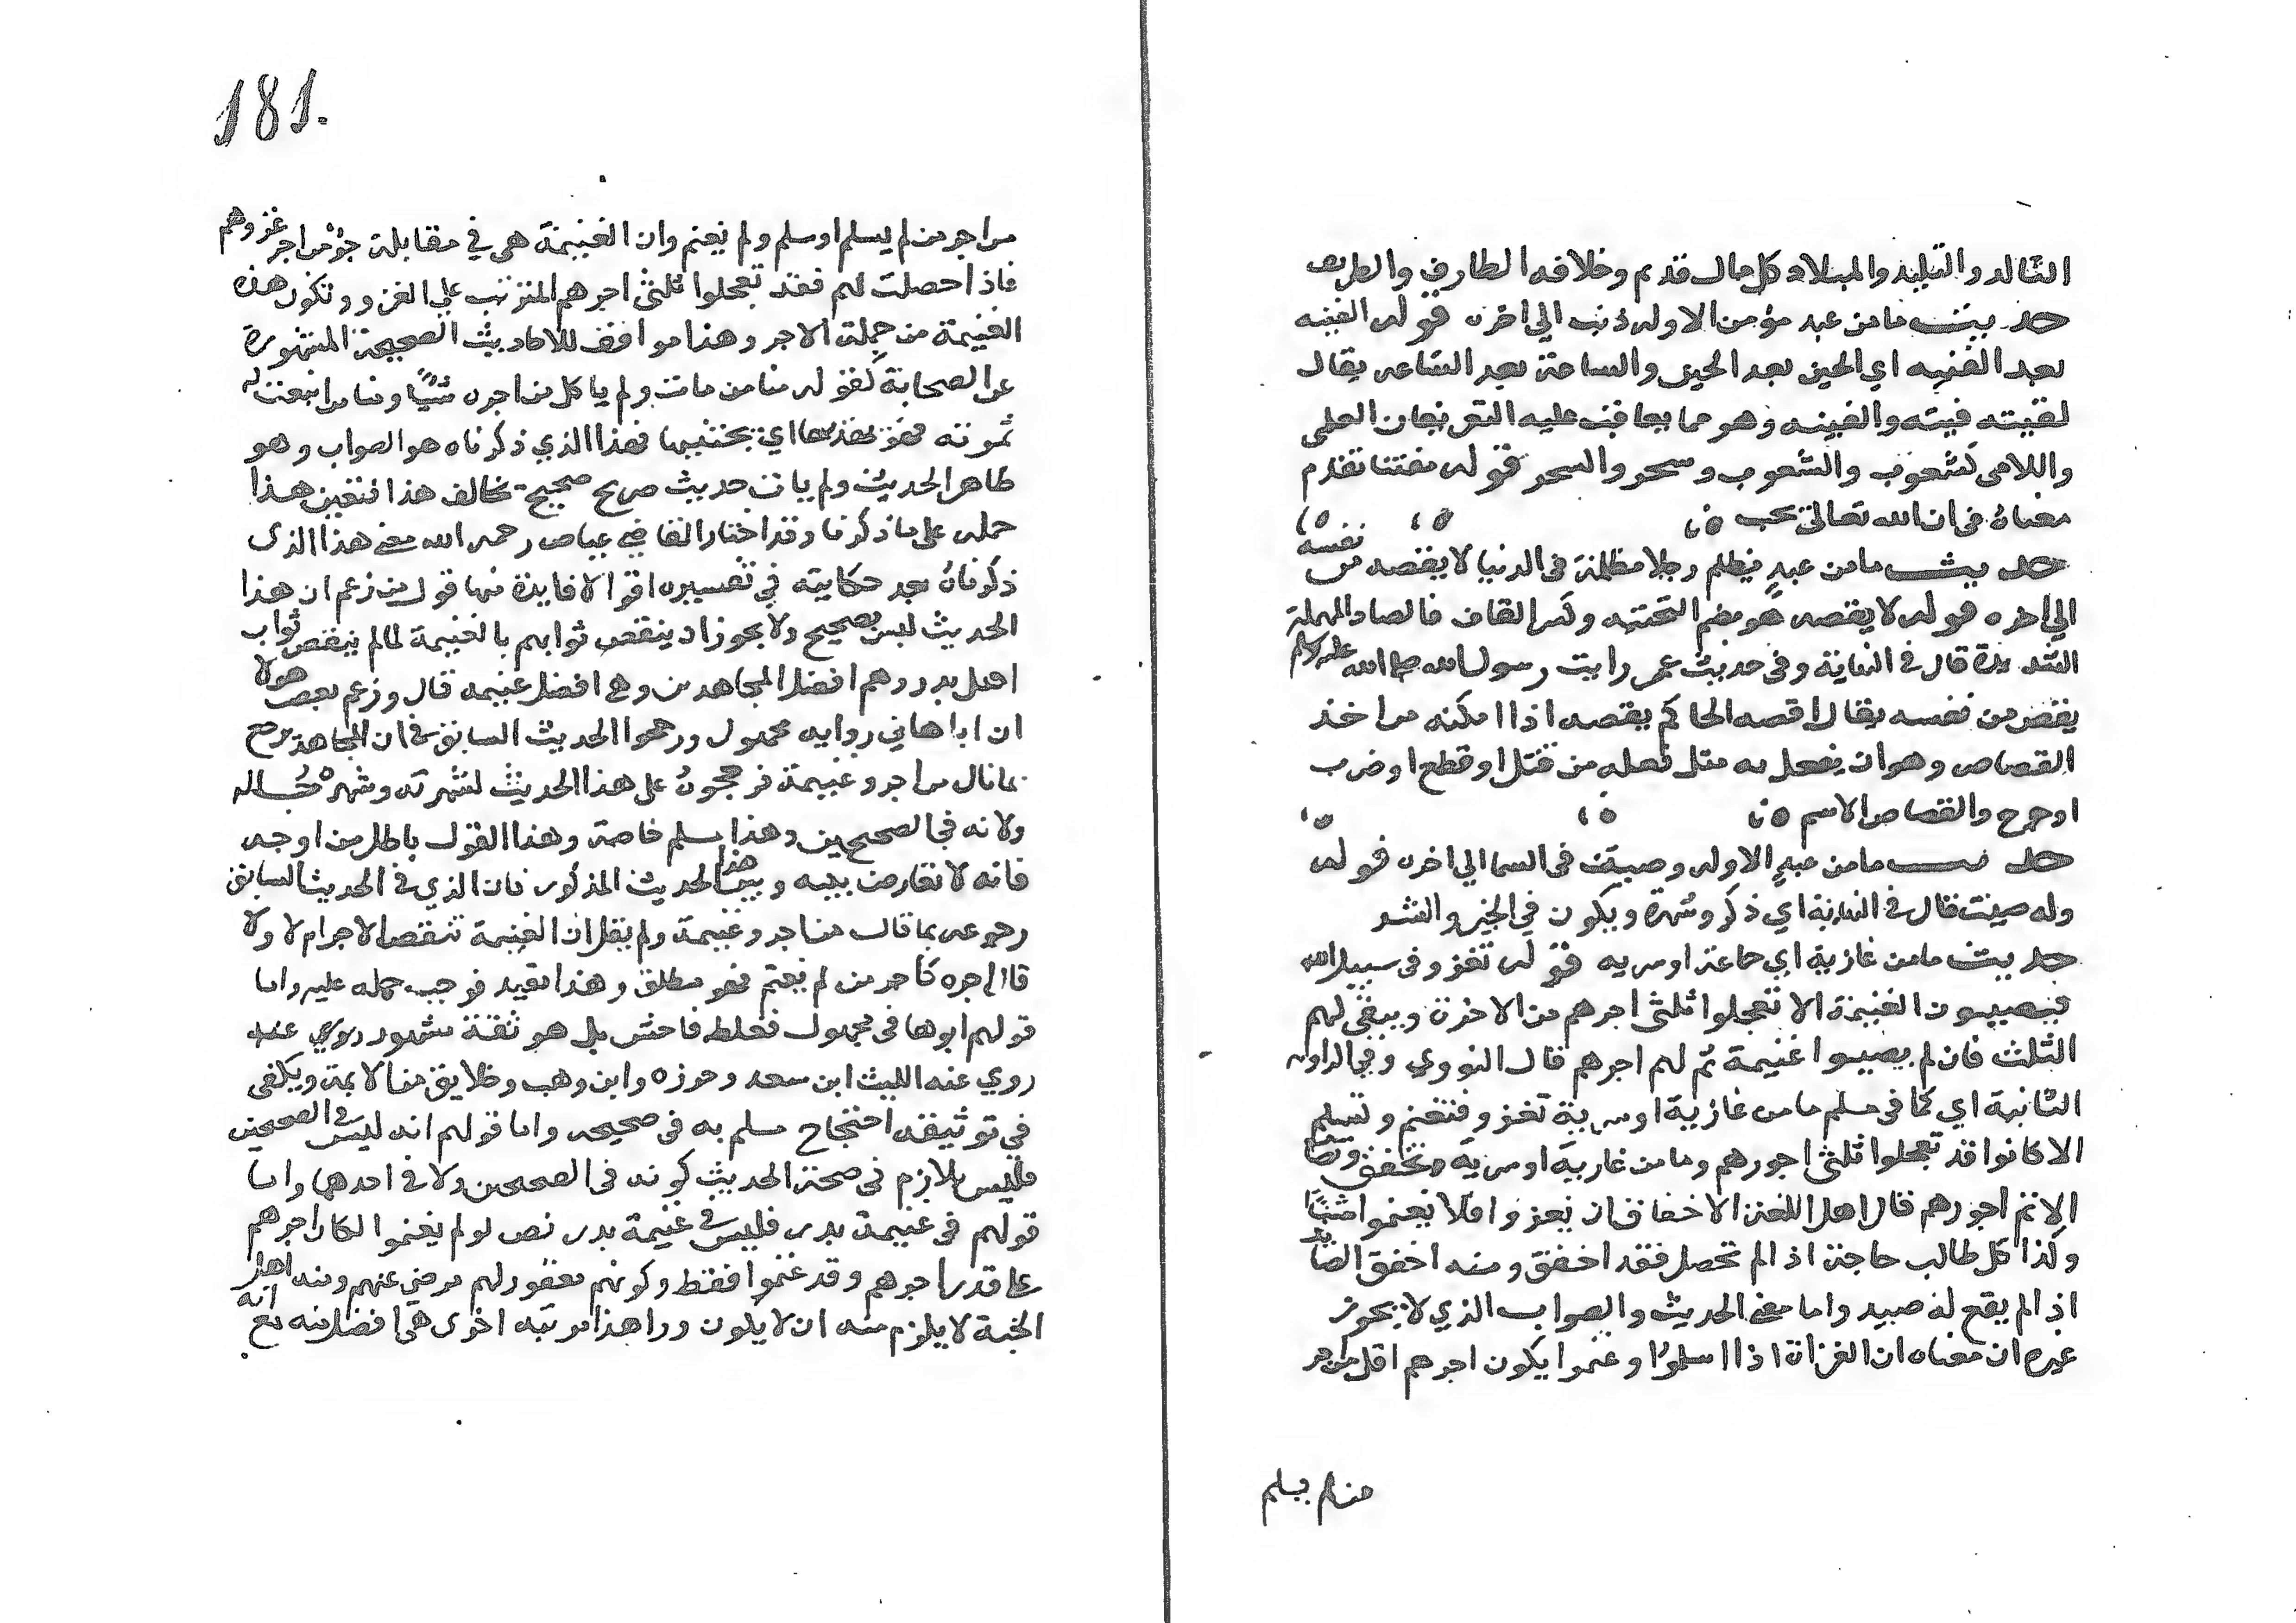 التالد والتليد والمبلاد كل مال قديم وخلافه الطارف والطريف
حديث ما من عبد مؤمن الا وله ذنب الي اخره قوله الفينه
بعد الفينه اي الحين بعد الحين والساعة بعد الساعه يقال
لقيته فينه والفينه وهو مما يعاقب عليه التعريفان العلمي
واللامي كشعوب والشعوب وسحر والسحر قوله مفتنا تقدم
معناه في ان الله تعالى يحب
حديث ما من عبدٍ يظلم رجلا مظلمة في الدنيا لا يقصه من نفسه
الي اخره قوله لا يقصه هو بضم التحتيه وكسر القاف فالصاد المهملة
المشددة قال في النهاية وفي حديث عمر رايت رسول الله صلى الله عليه وسلم
يقص من نفسه يقال اقصه الحاكم يقصه اذا امكنه من اخذ
القصاص وهو ان يفعل به مثل فعله من قتل او قطع او ضرب
او جرح والقصاص الاسم
حديث ما من عبدٍ الا وله وصيت في السما الي اخره قوله
وله صيت قال في النهاية اي ذكر وشهرة ويكون في الخير والشر
حديث ما من غازية اي جماعة او سريه قوله تغزو في سبيل الله
فيصيبون الغنيمة الا تعجلوا ثلثي اجرهم من الاخرة ويبقى لهم
الثلث فان لم يصيبوا غنيمة تم لهم اجرهم قال النووي وفي الرواية
الثانية اي كما في مسلم ما من غازية او سرية تغزو فتغنم وتسلم
الا كانوا قد تعجلوا ثلثي اجورهم وما من غازية او سرية تخفق وتصاب
الا تم اجورهم قال اهل اللغة الاخفاق ان يغزوا فلا يغنموا شيئا
وكذا كل طالب حاجة اذا لم تحصل فقد اخفق ومنه اخفق الصايد
اذا لم يقع له صيد واما معنى الحديث والصواب الذي لا يجوز
غيره ان معناه ان الغزاة اذا اسلموا وغنموا يكون اجرهم اقل من اجر
من لم يسلم
181.
من اجر من لم يسلم او سلم ولم يغنم وان الغنيمة هي في مقابلة جزؤ من اجر غزوهم
فاذا حصلت لهم فقد تعجلوا ثلثي اجرهم المترتب علي الغزو وتكون هذه
الغنيمة من جملة الاجر وهذا موافق للاحاديث الصحيحة المشهورة
عن الصحابة كقوله منا من مات ولم ياكل من اجره شيئًا ومنا من اينعت له
ثمرته فهو يهدبها اي يجتنيها فهذا الذي ذكرناه هو الصواب وهو
ظاهر الحديث ولم يات حديث صريح صحيح يخالف هذا فتعين هذا
حمله على ما ذكرنا وقد اختار القاضي عياض رحمه الله معنى هذا الذي
ذكرناه بعد حكايته في تفسيره اقوالا فايدة منها قول من زعم ان هذا
الحديث ليس بصحيح ولا يجوز ان ينقص ثوابهم بالغنيمة لما لم ينقص ثواب
اهل بدر وهم افضل المجاهدين وهي افضل غنيمه قال وزعم بعض هولا
ان ابا هاني روايه مجهول ورجحوا الحديث السابق في ان المجاهد يرجع
بما نال من اجر وغنيمة فرجحوه على هذا الحديث لشهرته وشهرة رجاله
ولانه في الصحيحين وهذا مسلم خاصة وهذا القول باطل من اوجه
فانه لا تعارض بينه وبين هذا الحديث المذكور فان الذي في الحديث السابق
رجوعه بما قال من اجر وغنيمة ولم يقل ان الغنيمة تنقص الاجر ام لا ولا
قال اجره كاجر من لم يغنم فهو مطلق وهذا مقيد فوجب حمله عليه واما
قولهم ابو هاني مجهول فغلط فاحش بل هو ثقة مشهور روي عنه
روي عنه الليث ابن سعد وحيوه وابن وهب وخلايق من الايمة ويكفي
في توثيقه احتجاج مسلم به في صحيحه واما قولهم انه ليس في الصحيحين
فليس بلازم في صحة الحديث كونه في الصحيحين ولا في احدهما واما
قولهم في غنيمة بدر فليس في غنيمة بدر نص لو لم يغنموا لكان اجرهم
على قدر اجرهم وقد غنموا فقط وكونهم مغفور لهم مرضي عنهم ومنه اهل
الجنة لا يلزم منه ان لا يكون ورا هذا مرتبه اخرى هي افضل منه مع انه